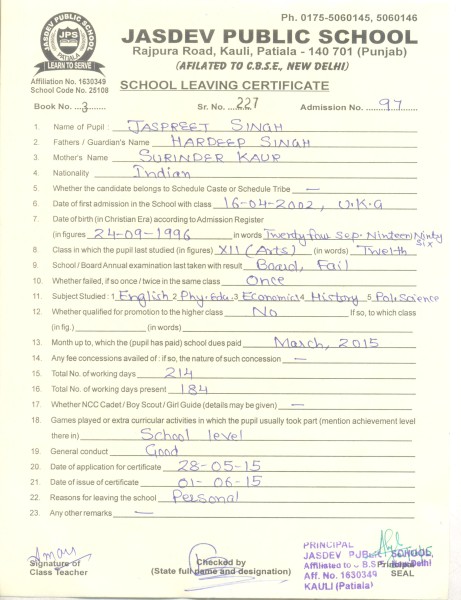 Ph. 0175-5060145, 5060146
JASDEV PUBLIC SCHOOL
JPS
PATIALA
LEARN TO SERVE
JASDEV PUBLIC SCHOOL
Rajpura Road, Kauli, Patiala - 140 701 (Punjab)
(AFILATED TO C.B.S.E., NEW DELHI)
Affiliation No. 1630349
School Code No. 25108
SCHOOL LEAVING CERTIFICATE
Book No. ..3........ Sr. No. ...227 Admission No. ........97....
1. Name of Pupil : JASPREET SINGH
2. Fathers / Guardian's Name HARDEEP SINGH
3. Mother's Name SURINDER KAUR
4. Nationality Indian
5. Whether the candidate belongs to Schedule Caste or Schedule Tribe —
6. Date of first admission in the School with class 16-04-2002, U.K.G
7. Date of birth (in Christian Era) according to Admission Register
(in figures) 24-09-1996 in words Twenty four Sep. Ninteen Ninty six
8. Class in which the pupil last studied (in figures) XII (Arts) (in words) Twelth
9. School / Board Annual examination last taken with result Board, Fail
10. Whether failed, if so once / twice in the same class Once
11. Subject Studied : 1 English 2 Phy. Edu. 3 Economics 4 History 5 Pol. Science
12. Whether qualified for promotion to the higher class No If so, to which class
(in fig.) (in words)
13. Month up to, which the (pupil has paid) school dues paid March, 2015
14. Any fee concessions availed of : if so, the nature of such concession —
15. Total No. of working days 214
16. Total No. of working days present 184
17. Whether NCC Cadet / Boy Scout / Girl Guide (details may be given) —
18. Games played or extra curricular activities in which the pupil usually took part (mention achievement level
there in) School level
19. General conduct Good
20. Date of application for certificate 28-05-15
21. Date of issue of certificate 01-06-15
22. Reasons for leaving the school Personal
23. Any other remarks —
Signature of
Class Teacher
Checked by
(State full name and designation)
PRINCIPAL
JASDEV PUBLIC SCHOOL,
Affiliated to C.B.S.E. New Delhi
Aff. No. 1630349
KAULI (Patiala)
Principal
SEAL